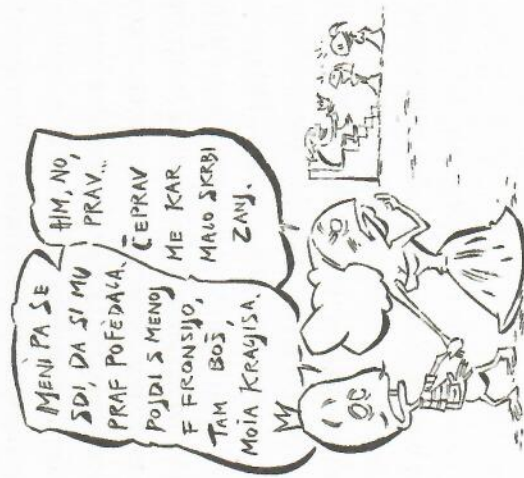 MENI PA SE
SDI, DA SI MU
PRAF POFÈDALA.
POJDI S MENOJ
F FRONSIJO,
TAM BOŠ,
MOJA KRAJISA.
HM, NO,
PRAV...
ČEPRAV
ME KAR
MALO SKRBI
ZANJ.